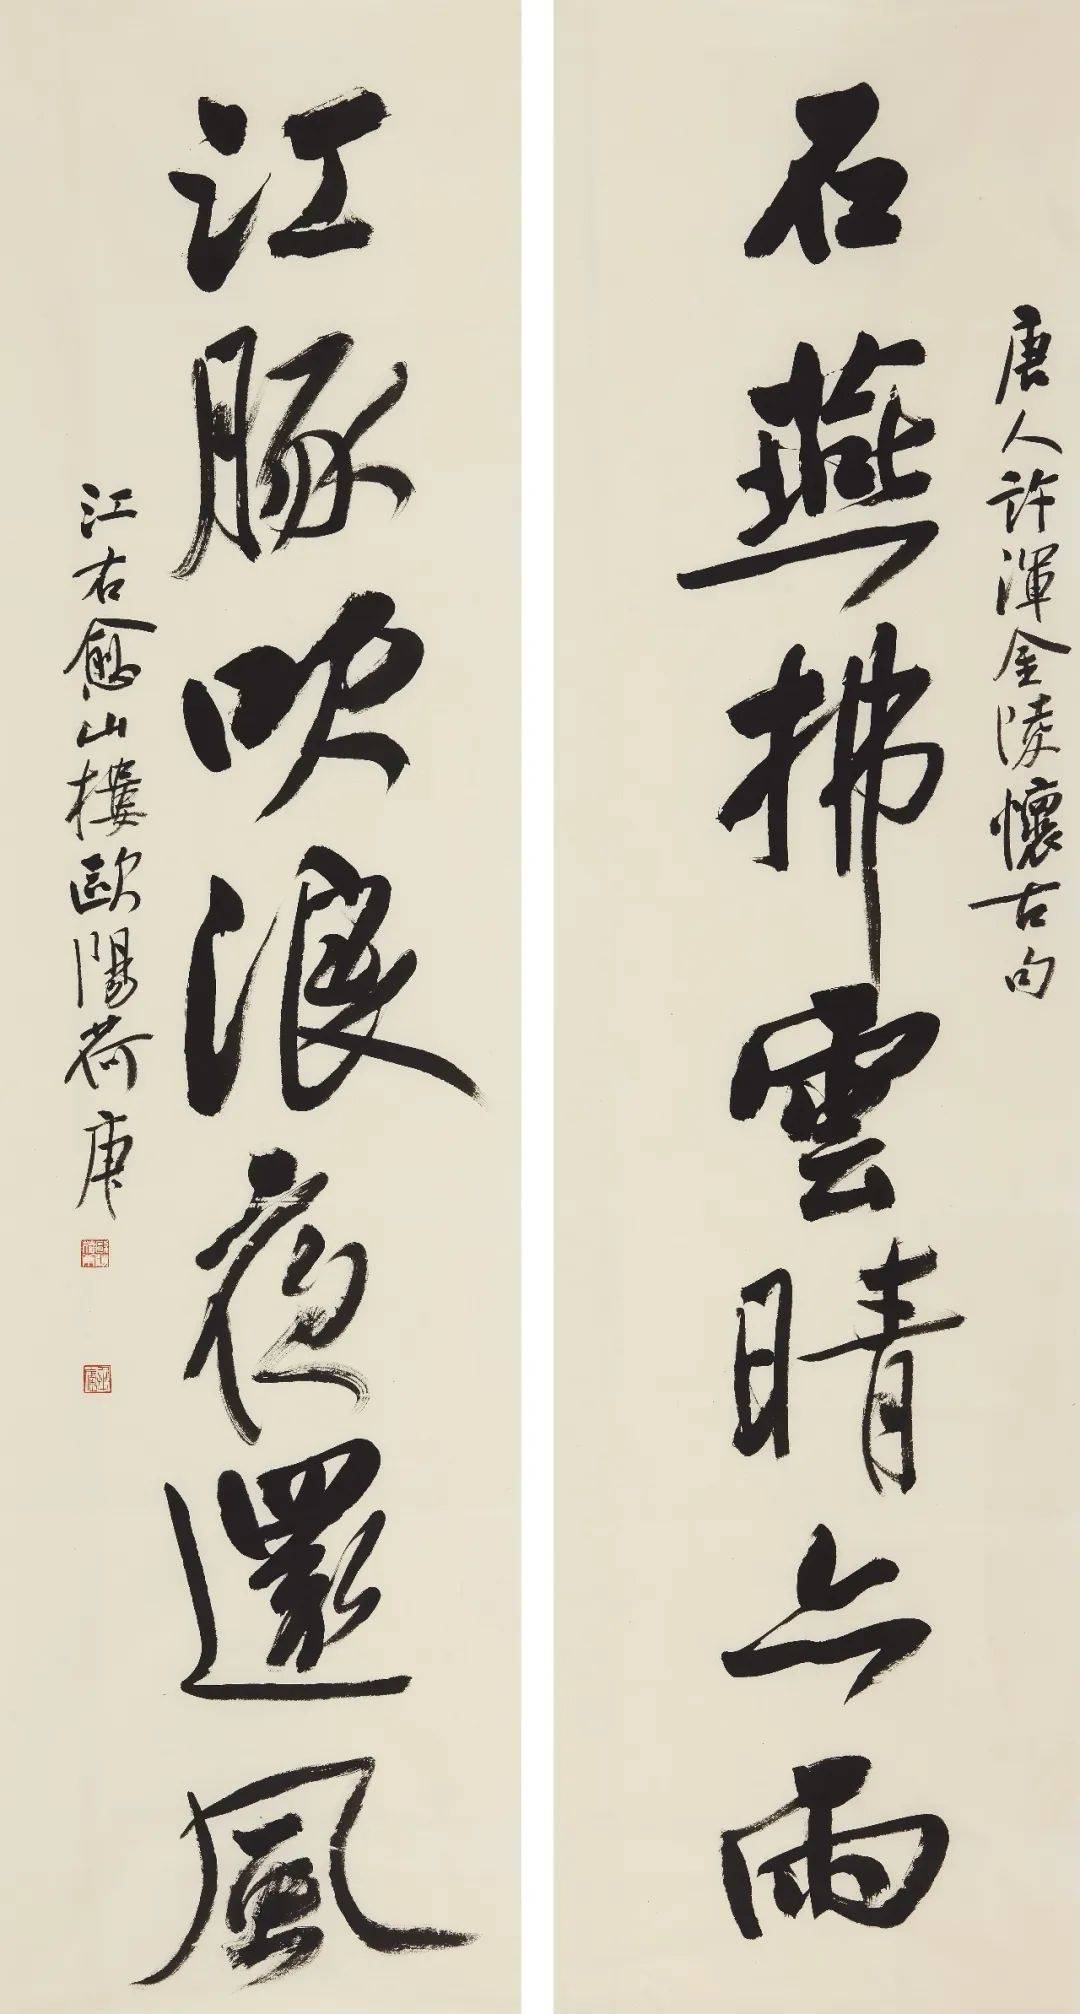 石燕拂雲晴亦雨
唐人許渾金陵懷古句
江豚吹浪夜還風
江右愈山樓歐陽荷庚